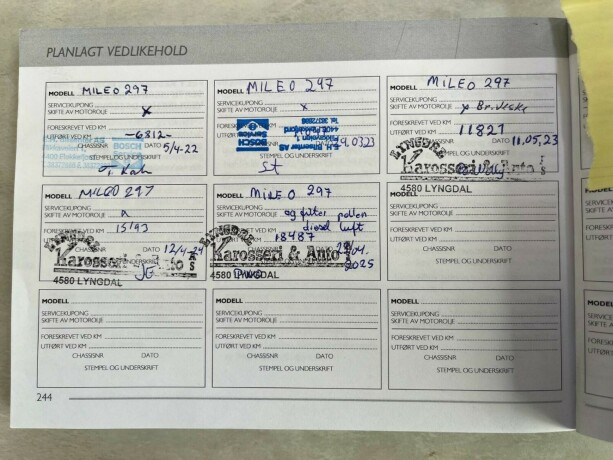 PLANLAGT VEDLIKEHOLD
MODELL MILEO 297
SERVICEKUPONG
SKIFTE AV MOTOROLJE x
FORESKREVET VED KM
UTFØRT VED KM -6812-
CHASSISNR DATO 5/4-22
STEMPEL OG UNDERSKRIFT
BOSCH
MODELL MILEO 297
SERVICEKUPONG
SKIFTE AV MOTOROLJE x
BOSCH
Service
St
MODELL MILEO 297
SERVICEKUPONG
SKIFTE AV MOTOROLJE x
FORESKREVET VED KM
UTFØRT VED KM 11821
CHASSISNR DATO 11.05.23
LYNGDAL
Karosseri & Auto AS
4580 LYNGDAL
MODELL MILEO 297
SERVICEKUPONG
SKIFTE AV MOTOROLJE x
FORESKREVET VED KM
UTFØRT VED KM 15193
CHASSISNR DATO 12/4-24
LYNGDAL
Karosseri & Auto AS
4580 LYNGDAL
MODELL MILEO 297
SERVICEKUPONG
SKIFTE AV MOTOROLJE og filter pollen
diesel luft
18487
2025
LYNGDAL
Karosseri & Auto AS
4580 LYNGDAL
MODELL
SERVICEKUPONG
SKIFTE AV MOTOROLJE
FORESKREVET VED KM
UTFØRT VED KM
CHASSISNR DATO
STEMPEL OG UNDERSKRIFT
MODELL
SERVICEKUPONG
SKIFTE AV MOTOROLJE
FORESKREVET VED KM
UTFØRT VED KM
CHASSISNR DATO
STEMPEL OG UNDERSKRIFT
MODELL
SERVICEKUPONG
SKIFTE AV MOTOROLJE
FORESKREVET VED KM
UTFØRT VED KM
CHASSISNR DATO
STEMPEL OG UNDERSKRIFT
MODELL
SERVICEKUPONG
SKIFTE AV MOTOROLJE
FORESKREVET VED KM
UTFØRT VED KM
CHASSISNR DATO
STEMPEL OG UNDERSKRIFT
244